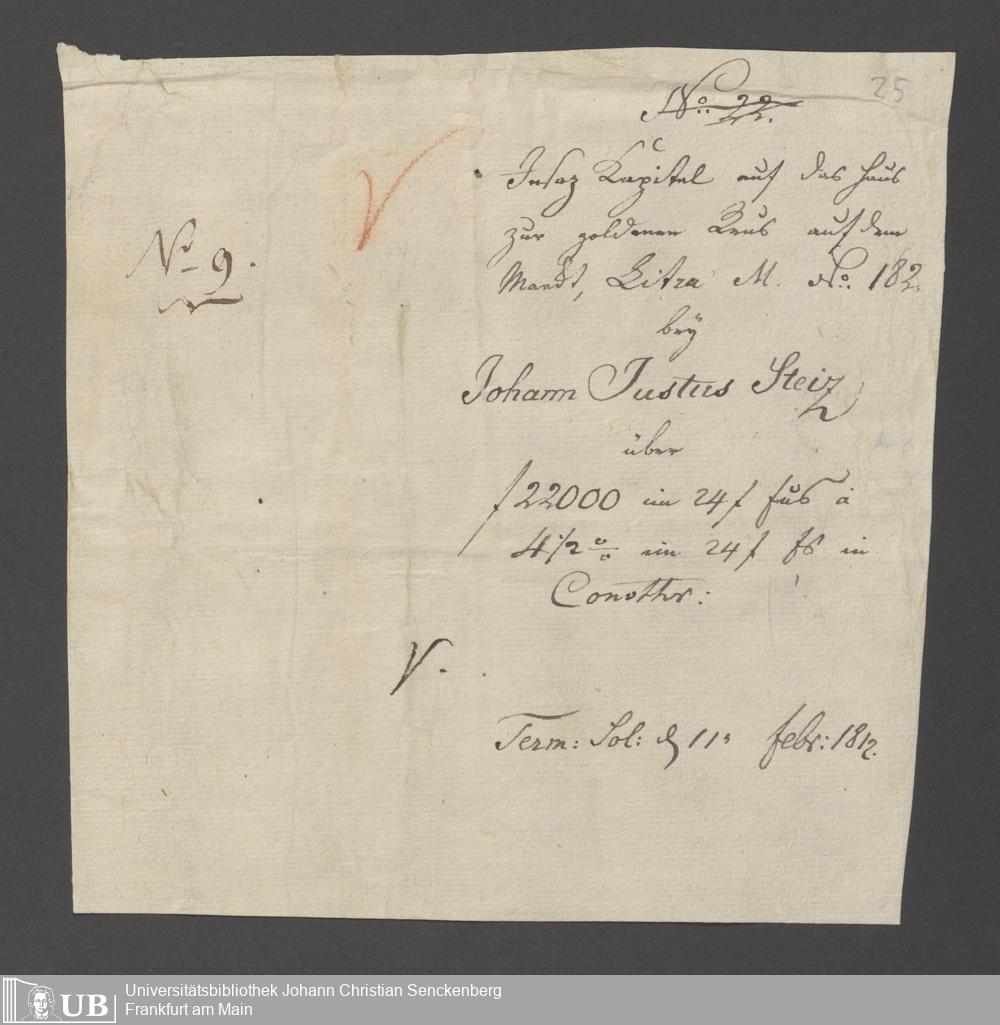 25
No. 22.
Insaz Kapital auf das Haus
zur goldenen Reus auf dem
Markt, Litra M. No. 182.
bey
Johann Justus Steiz
über
f 22000 im 24 f fus à
4 1/2 % im 24 f fs in
Convtthr:
No 9.
V.
Term: Sol: d 11n febr: 1812.
UB
Universitätsbibliothek Johann Christian Senckenberg
Frankfurt am Main